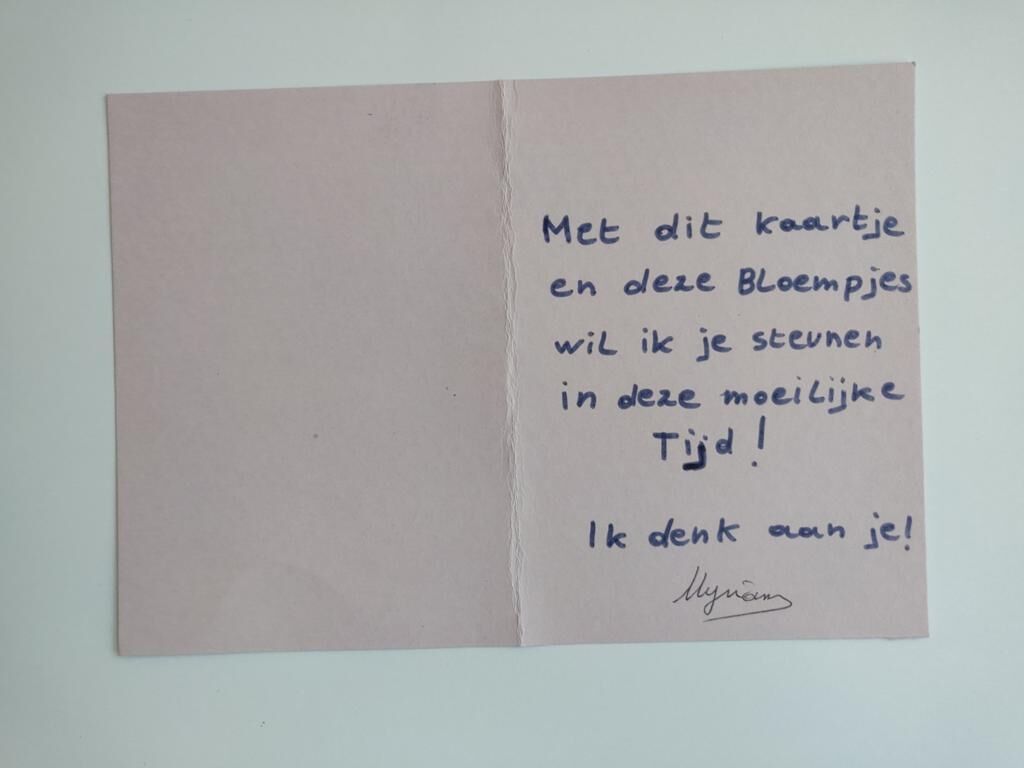 Met dit kaartje
en deze Bloempjes
wil ik je steunen
in deze moeilijke
Tijd!
Ik denk aan je!
Myriam